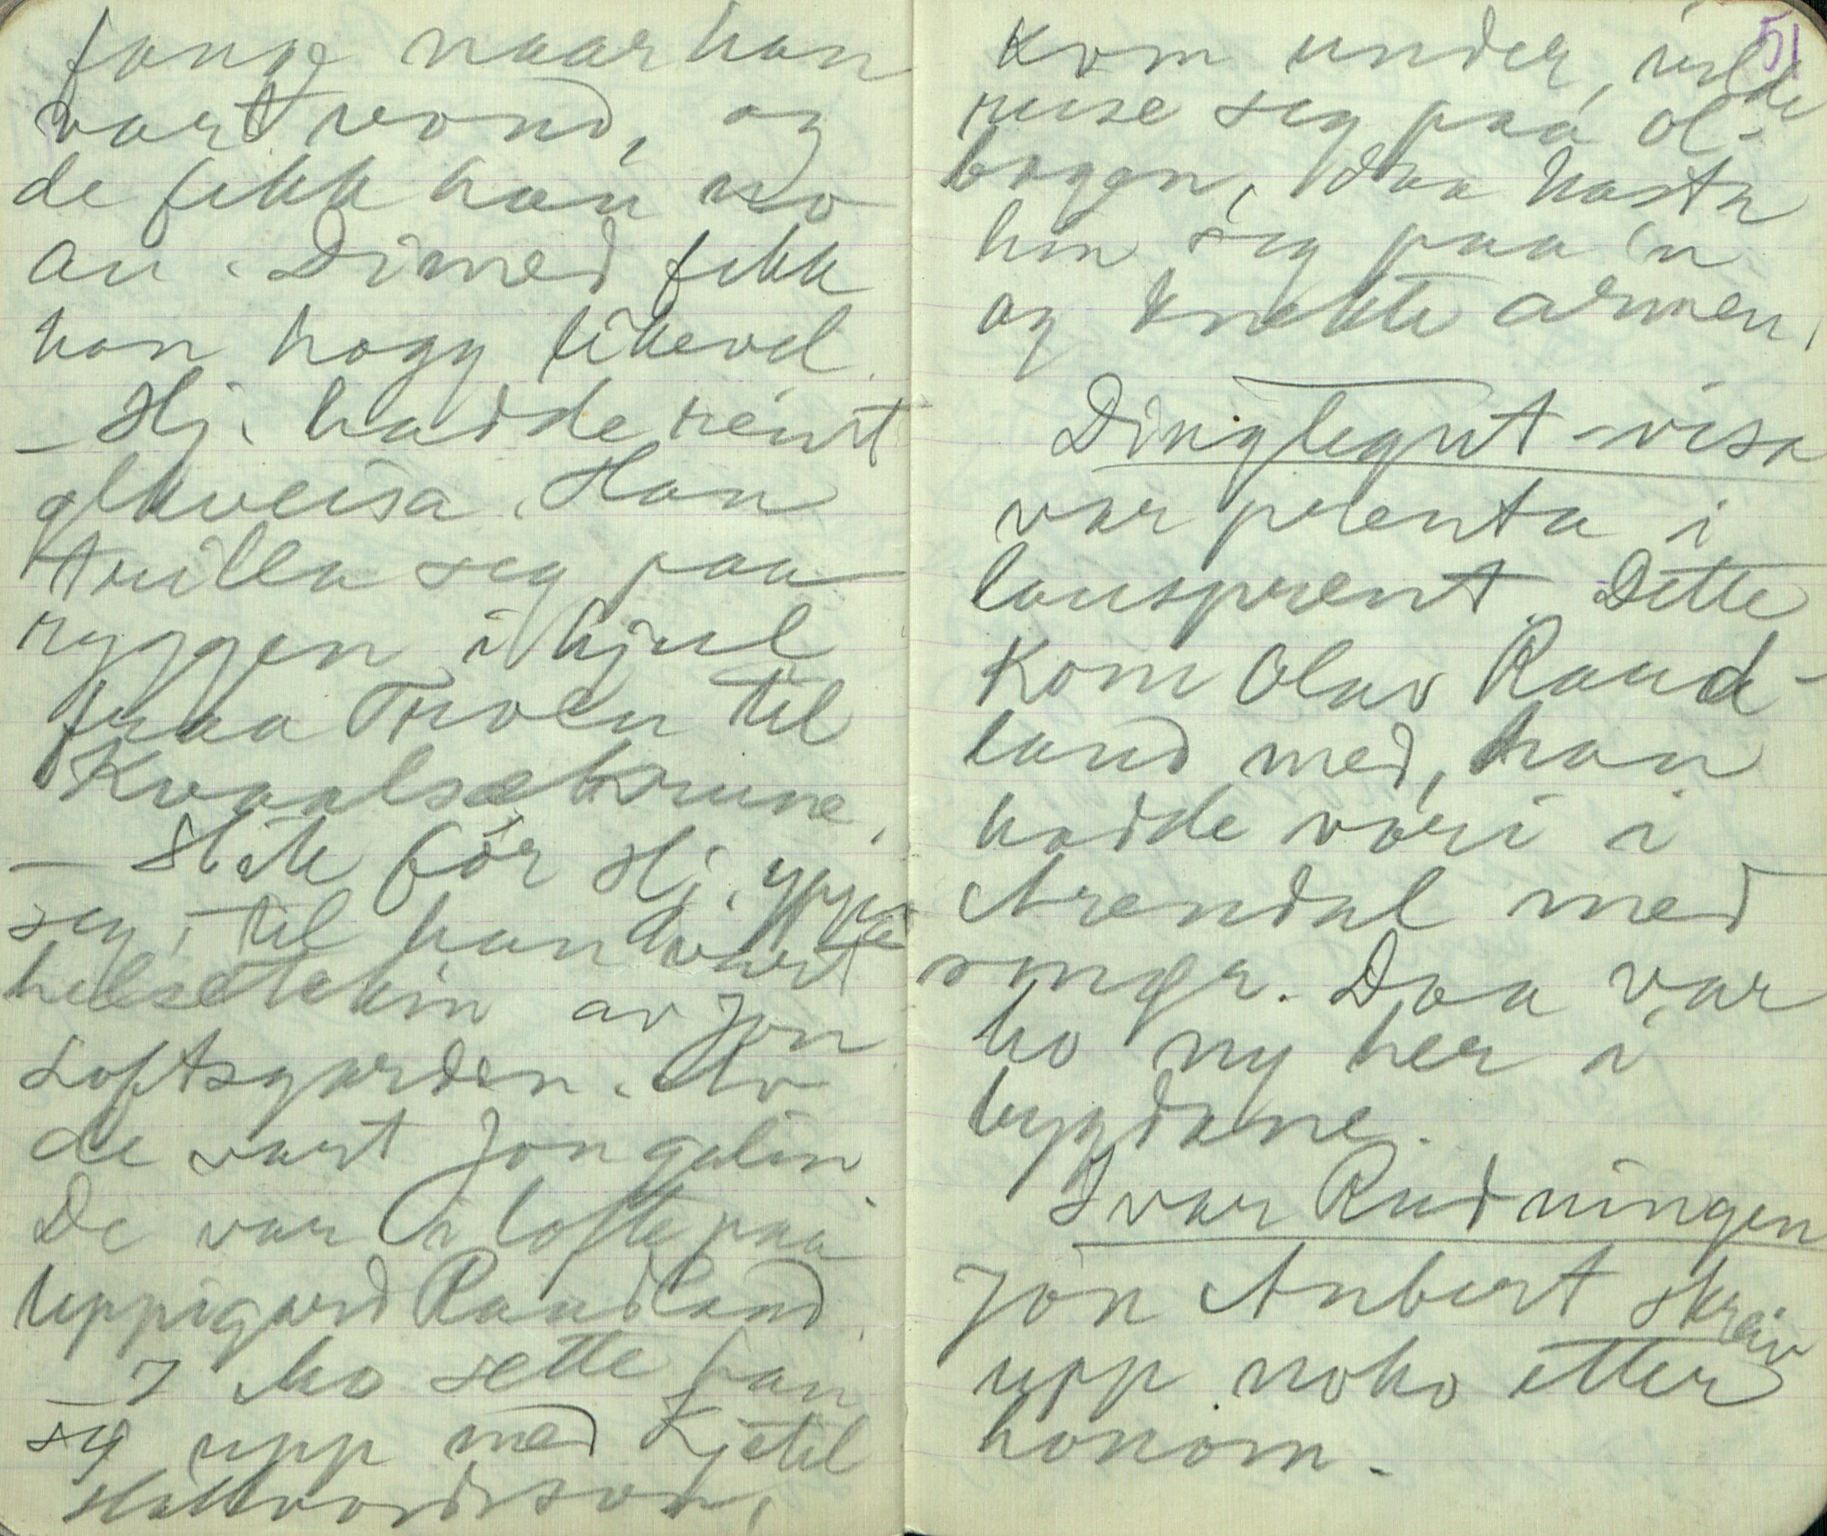 fange naar han
vart vond, og
de fekk han no
au. Dimed fekk
han hogg likevel.
– Hj. hadde reint
ølkveisa. Han
trilla seg paa
ryggen i hjul
fraa Troen til
Kvaalsæterune.
– Slik fór Hj. yppa
seg, til han vart
helsetekin av Jon
Loftsgarden. Av
de vart Jon galin.
De var i lofte paa
Uppigard Raudland.
– I Mo sette han
seg upp med Kjetil
Hallvordson,
51
kom under, vilde
reise seg paa ol-
bogen, daa kasta
hin seg paa 'n
og knekte armen.
Dinglegut-visa
var prenta i
lausprent. Dette
kom Olav Raud-
land med, han
hadde vori i
Arendal med
Daa var
ho ny her i
bygdane.
Ivar Rudningen
Jon Aubert skreiv
upp noko etter
honom.